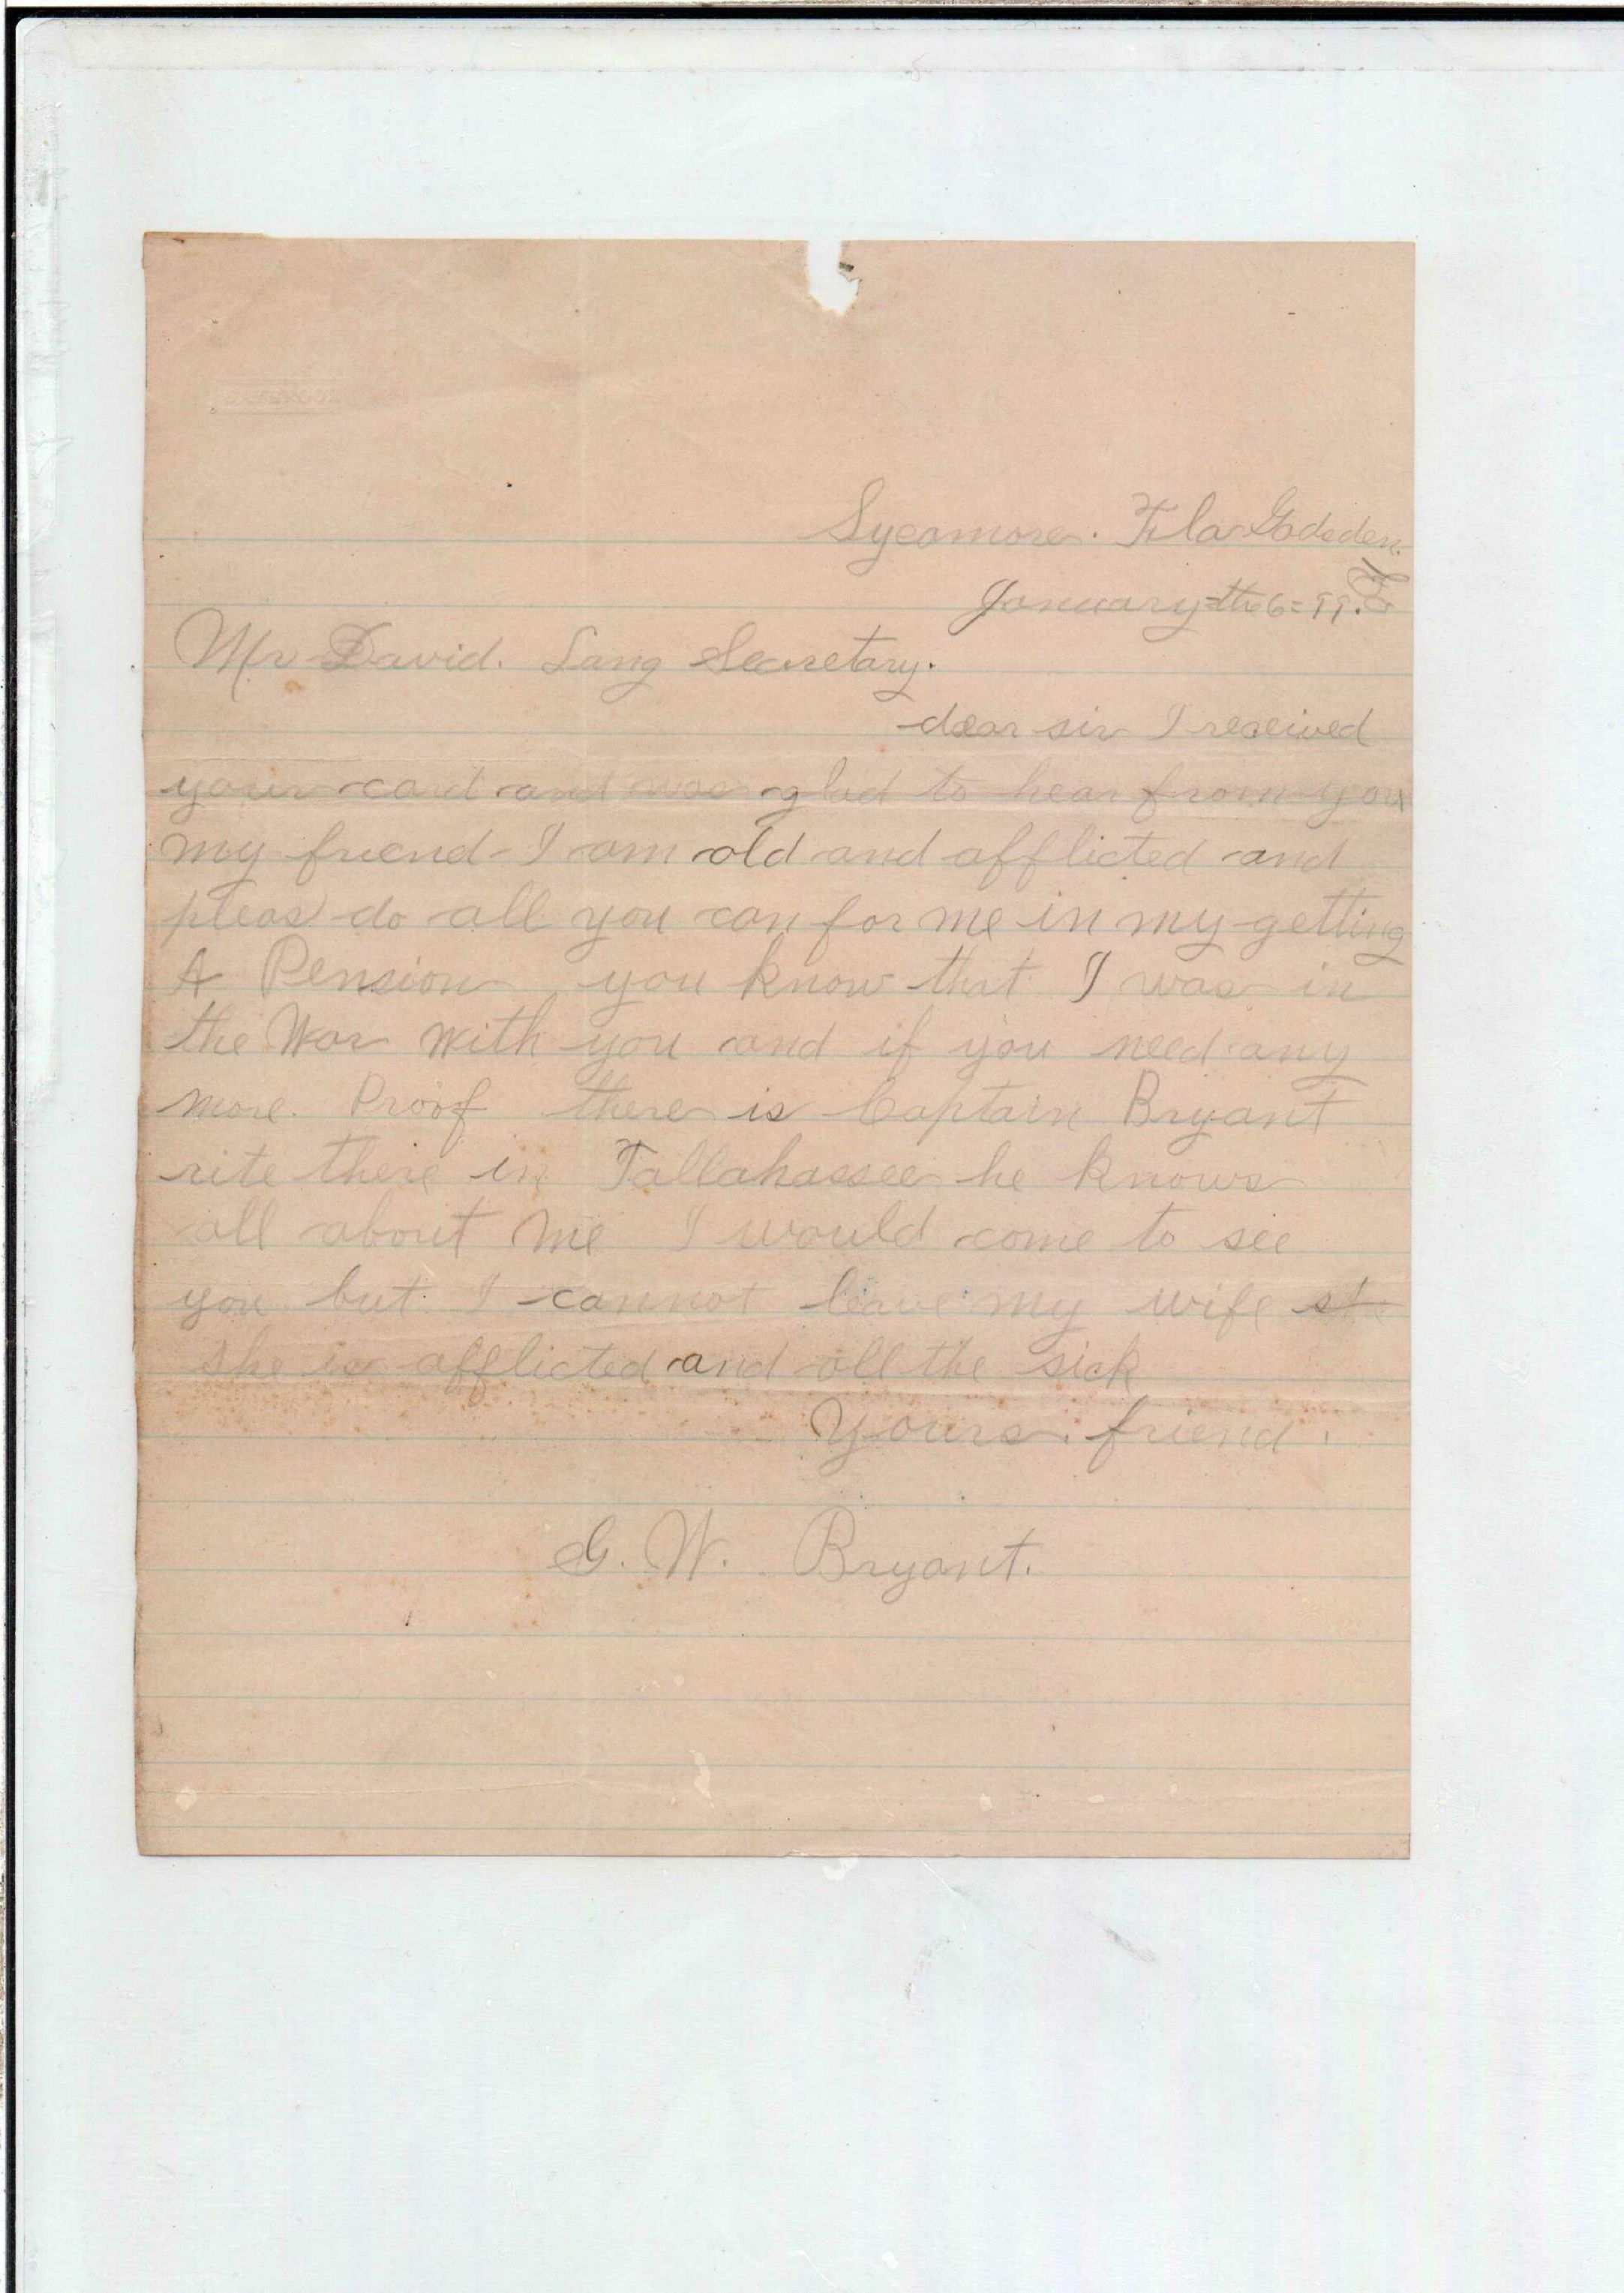 Sycamore. Fla Gadsden.
January = the 6 = 99. Co
Mr David. Lang Secretary.
dear sir I received
your card and was glad to hear from you
my friend - I am old and afflicted and
pleas do all you can for me in my getting
A Pension you know that I was in
the War with you and if you need any
more. Proof there is Captain Bryant
rite there in Tallahassee he knows
all about me I would come to see
you but I cannot leave my wife
she is afflicted and all the sick
Yours. friend.
G. W. Bryant.